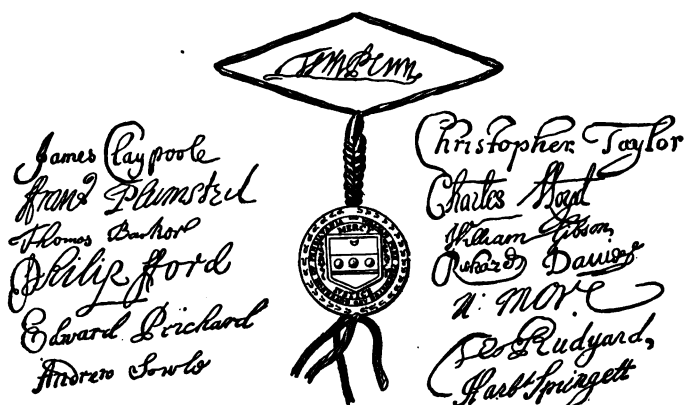 Wm Penn
James Claypoole
Franc Plumsted
Thomas Barker
Philip fford
Edward Prichard
Andrew Sowle
Christopher Taylor
Charles Lloyd
William Gibson
Richard Davies
N: More
Geo Rudyard,
Harbt Springett
MERCY
JUSTICE